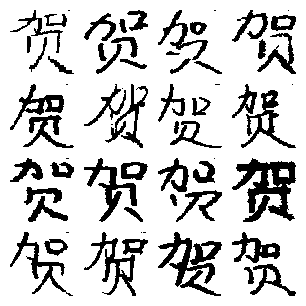 贺贺贺贺
贺贺贺贺
贺贺贺贺
贺贺贺贺